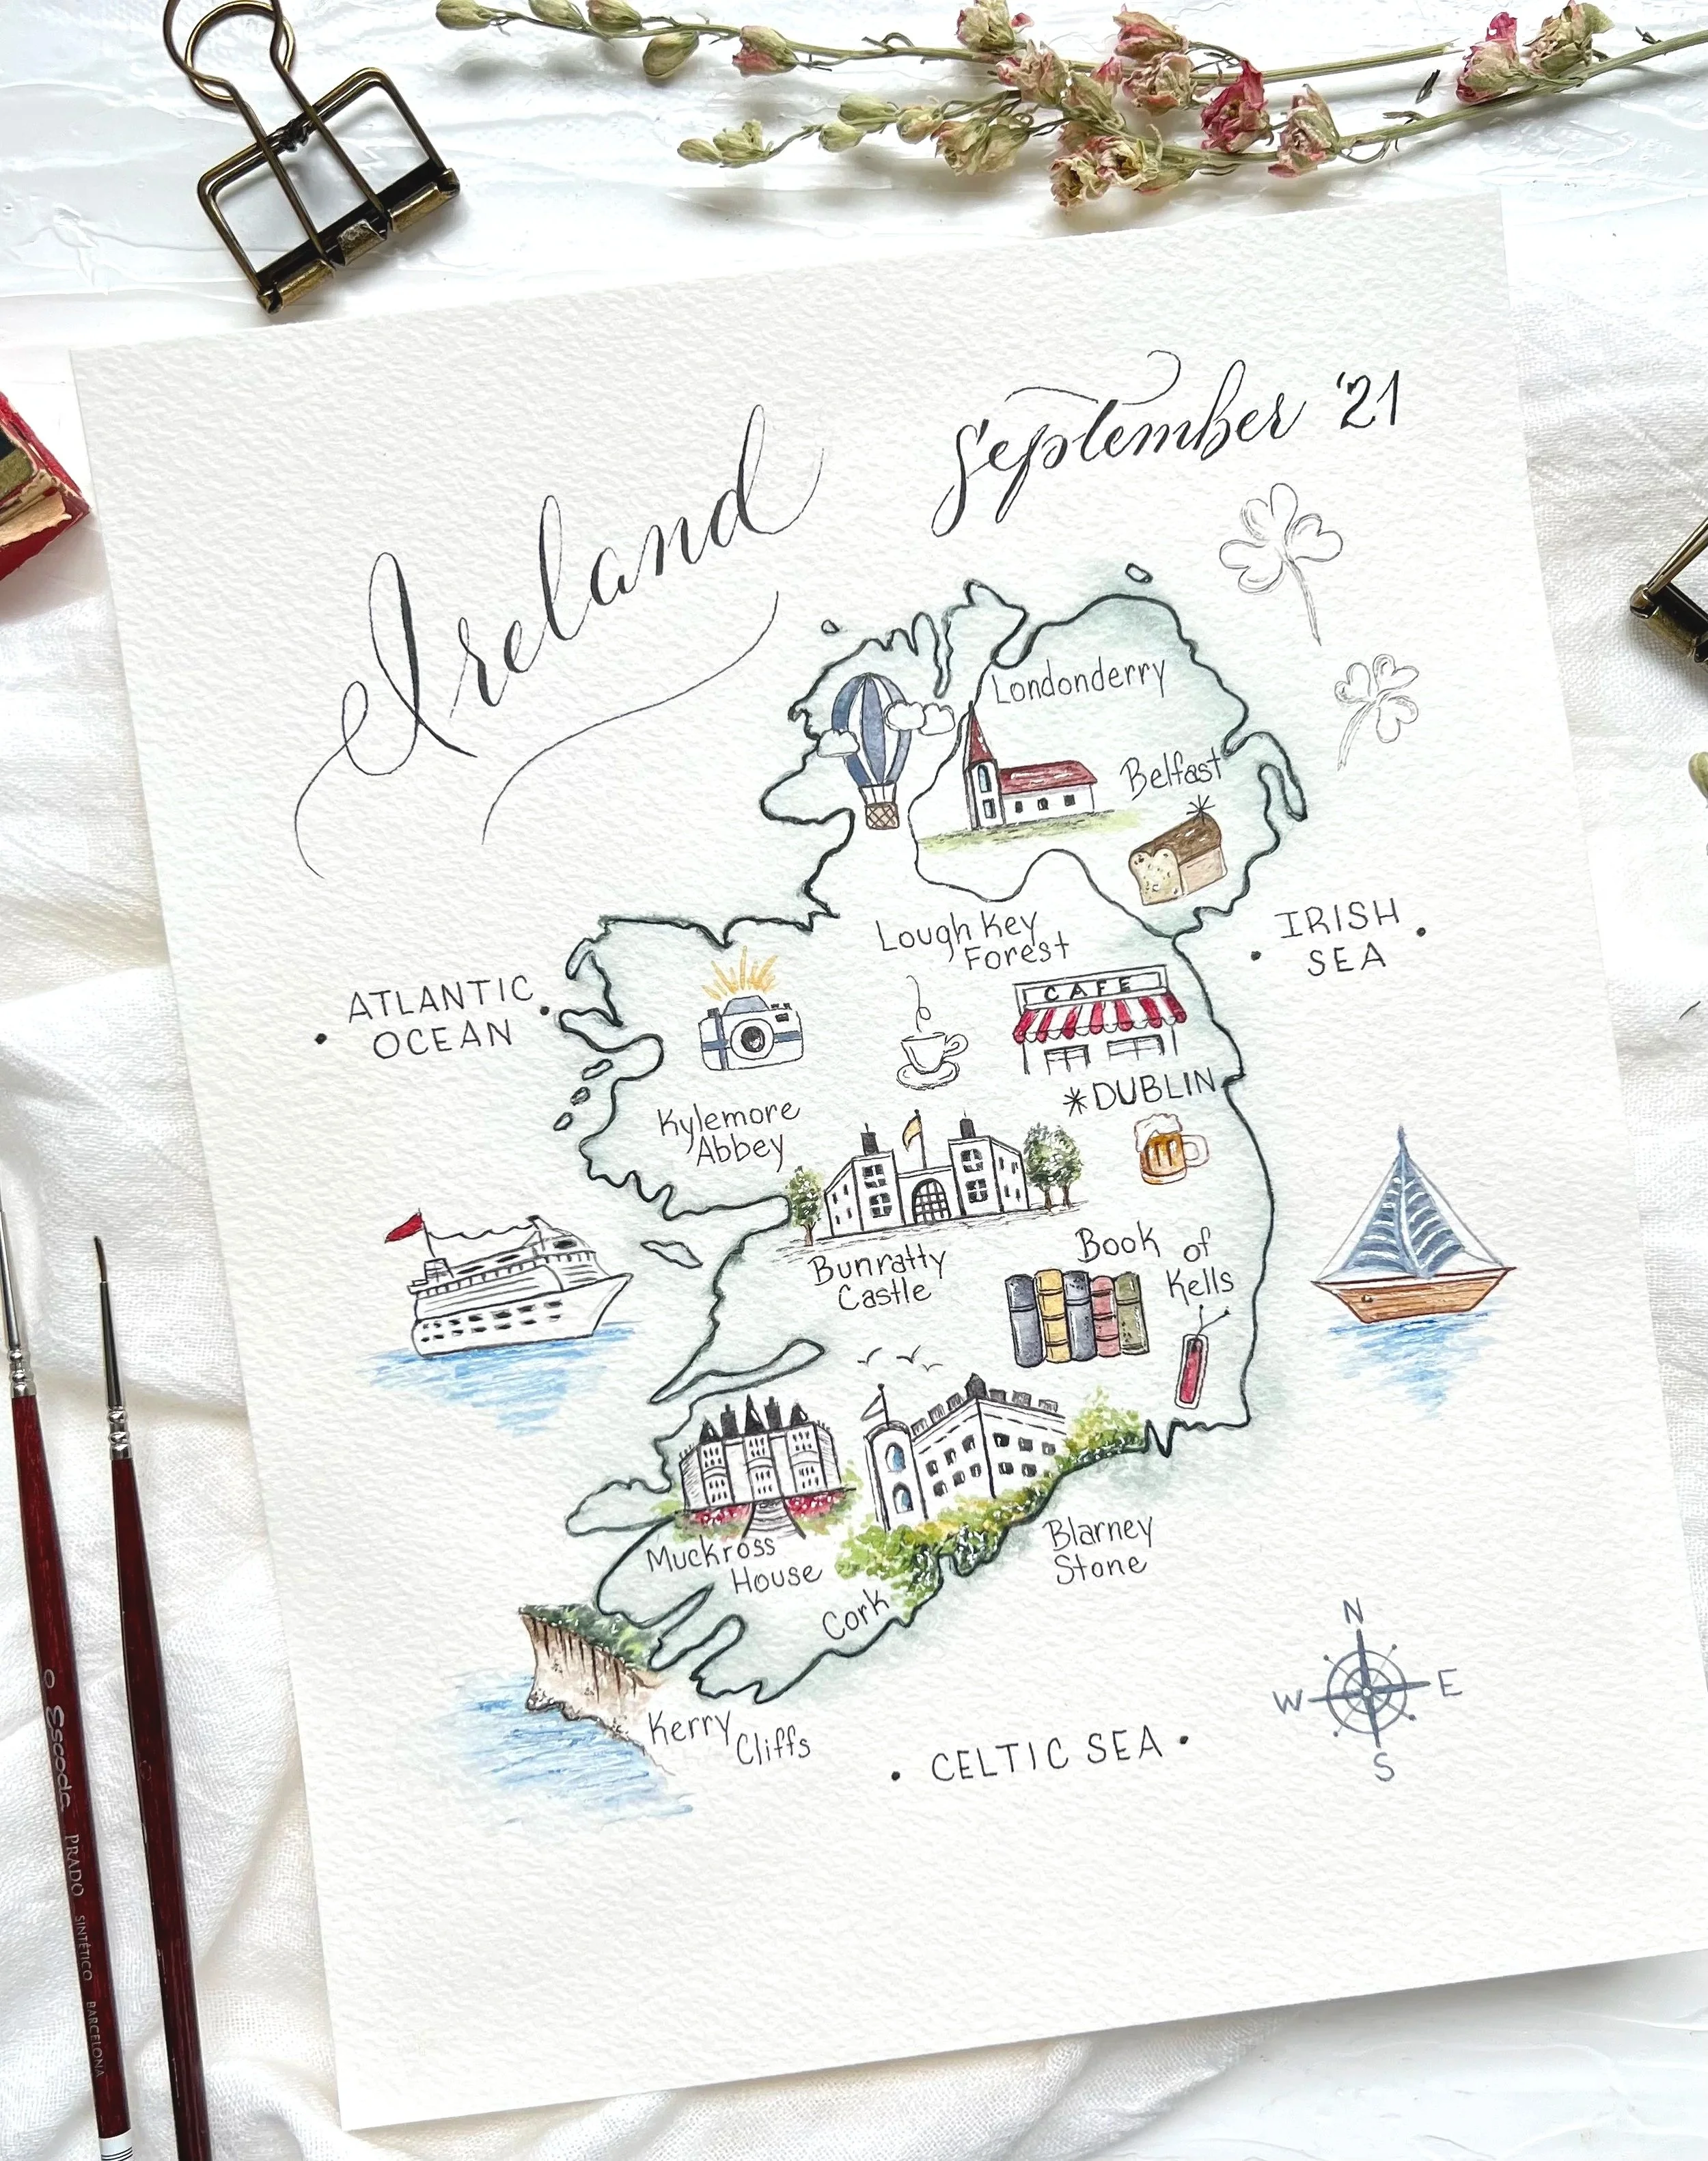 Ireland
September '21
Londonderry
Belfast
Lough Key
Forest
IRISH
SEA
ATLANTIC
OCEAN
CAFE
*DUBLIN
Kylemore
Abbey
Bunratty
Castle
Book of
Kells
Muckross
House
Blarney
Stone
Cork
Kerry
Cliffs
CELTIC SEA
N
W
E
S
0 Escoda PRADO SINTÉTICO BARCELONA